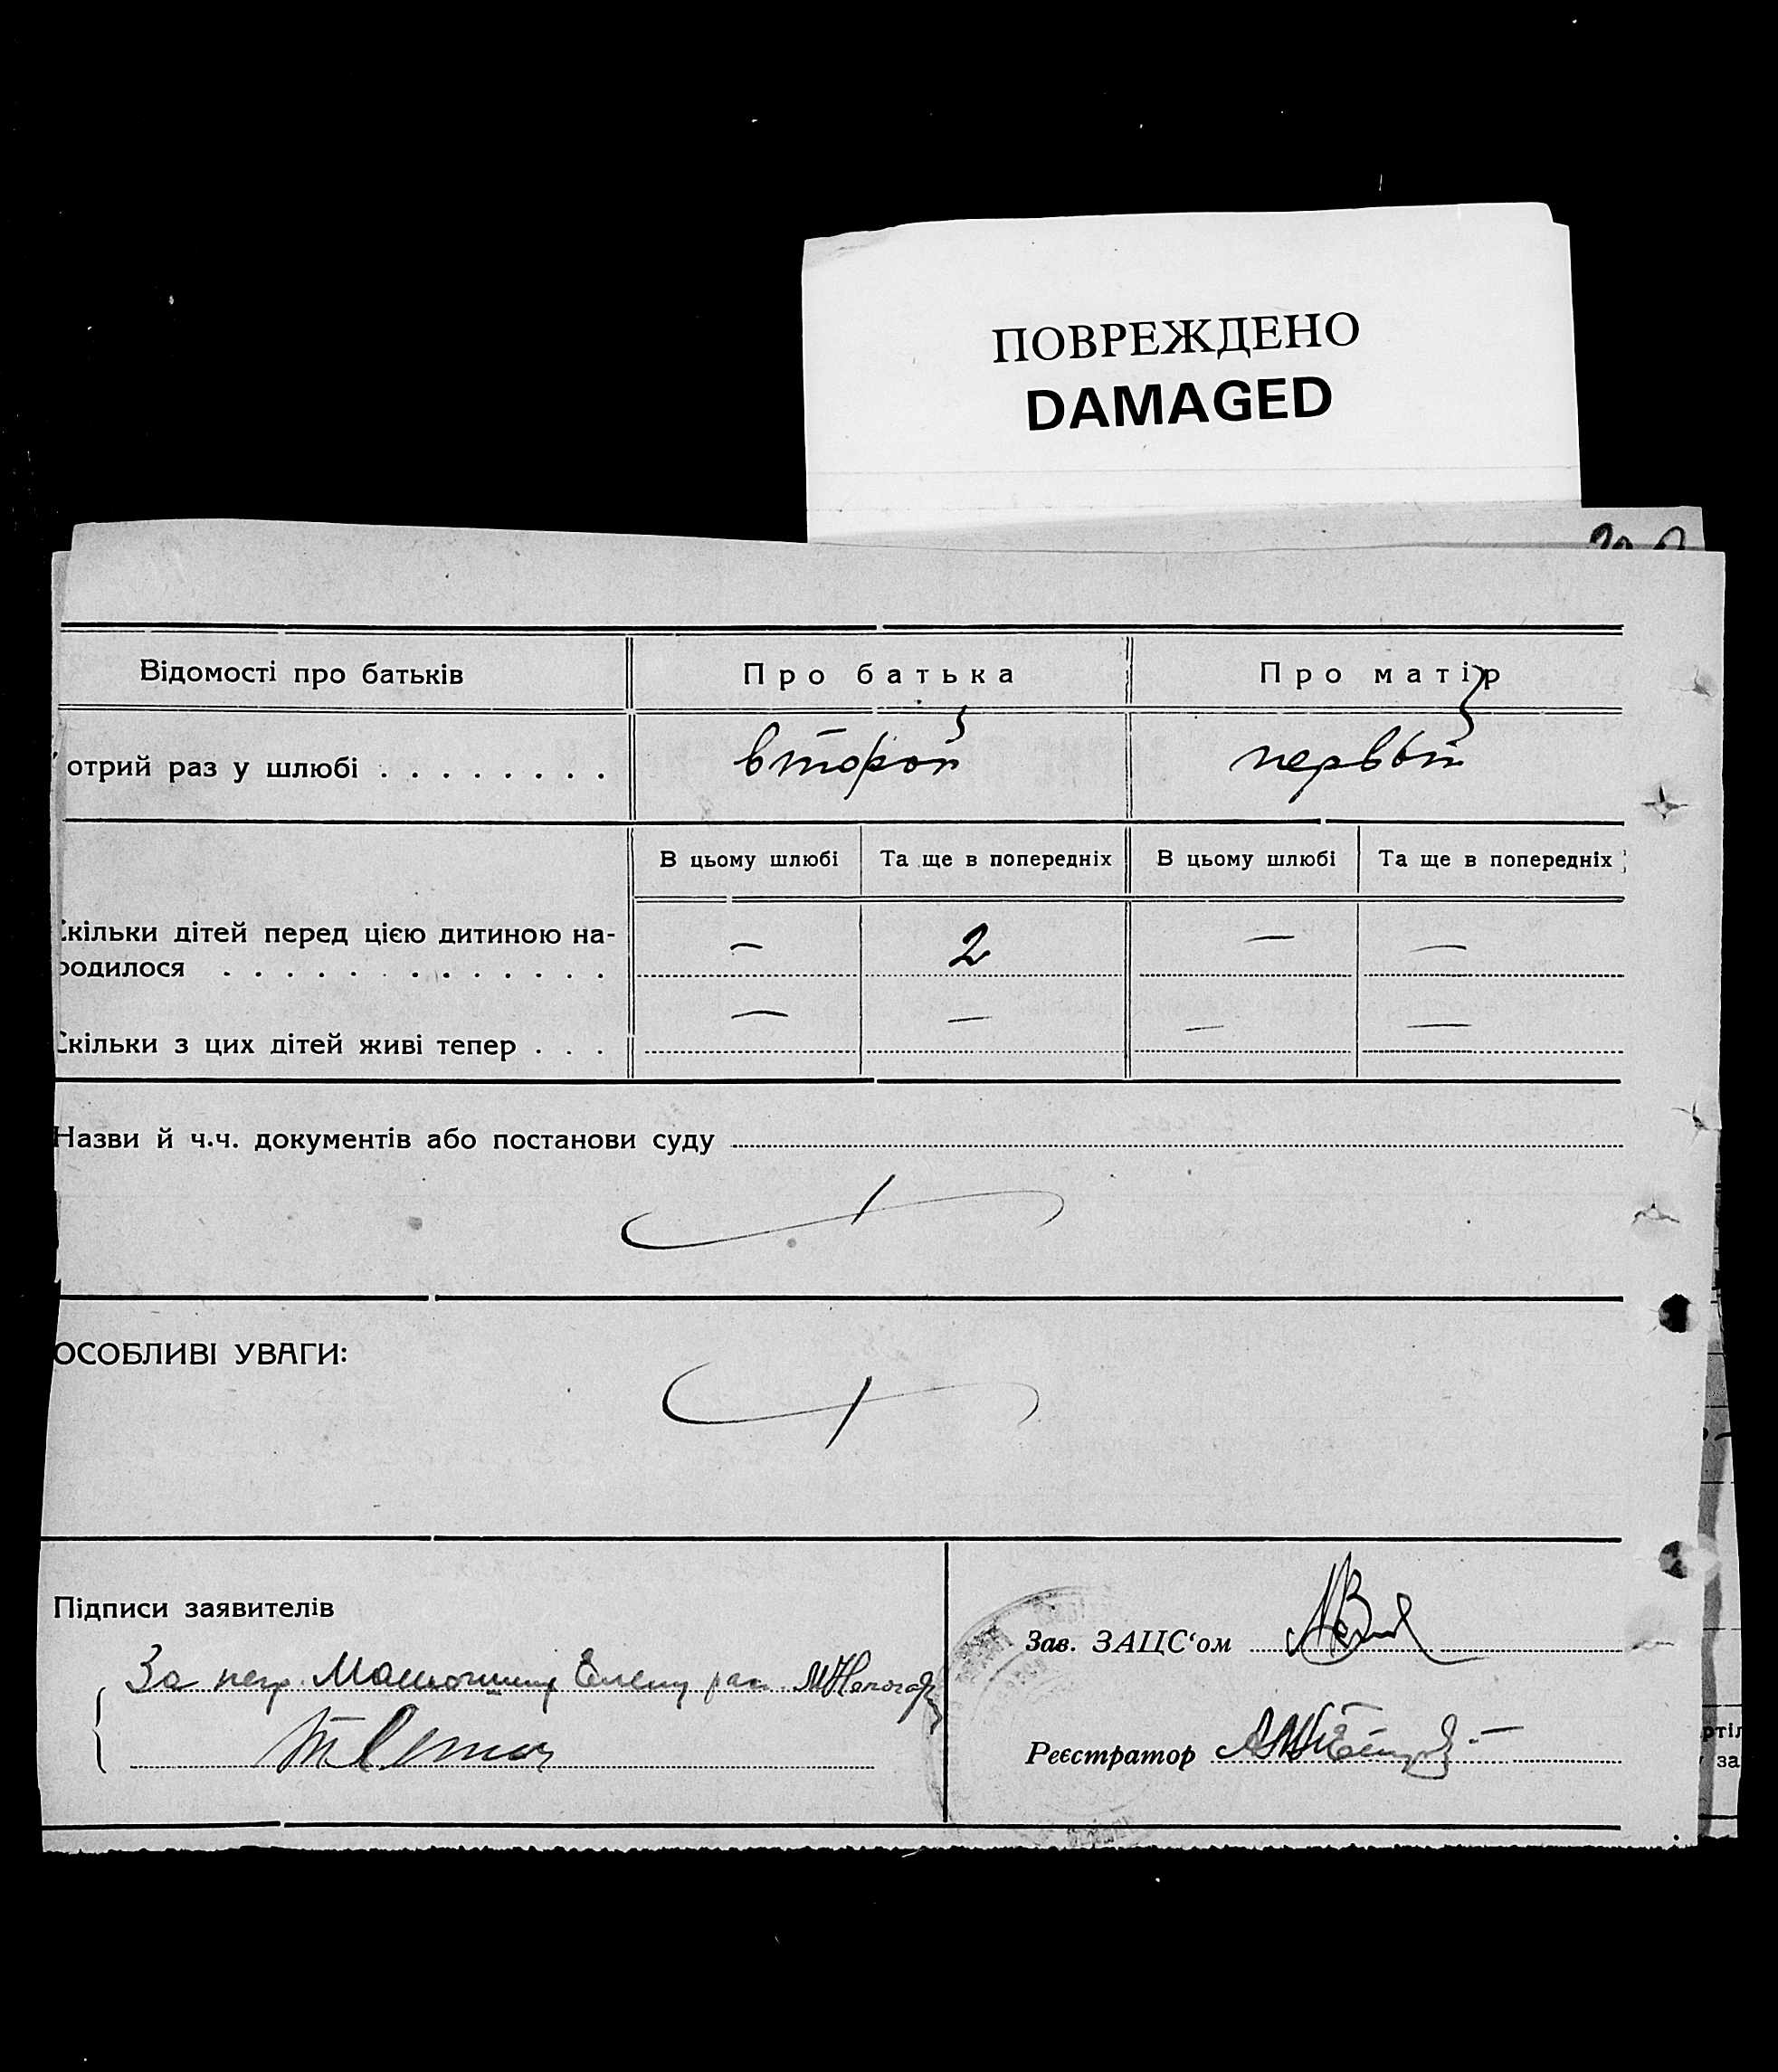 ПОВРЕЖДЕНО
DAMAGED
Відомості про батьків
Про батька
Про матір
отрий раз у шлюбі . . . . . . . .
второй
первый
В цьому шлюбі
Та ще в попередніх
В цьому шлюбі
Та ще в попередніх
кільки дітей перед цією дитиною на-
родилося . . . . . . . . . . . . .
—
2
—
—
кільки з цих дітей живі тепер . . .
—
—
—
—
Назви й ч.ч. документів або постанови суду
ОСОБЛИВІ УВАГИ:
Підписи заявителів
За негр.
Зав. ЗАЦС‘ом
Реєстратор
ртіл
за